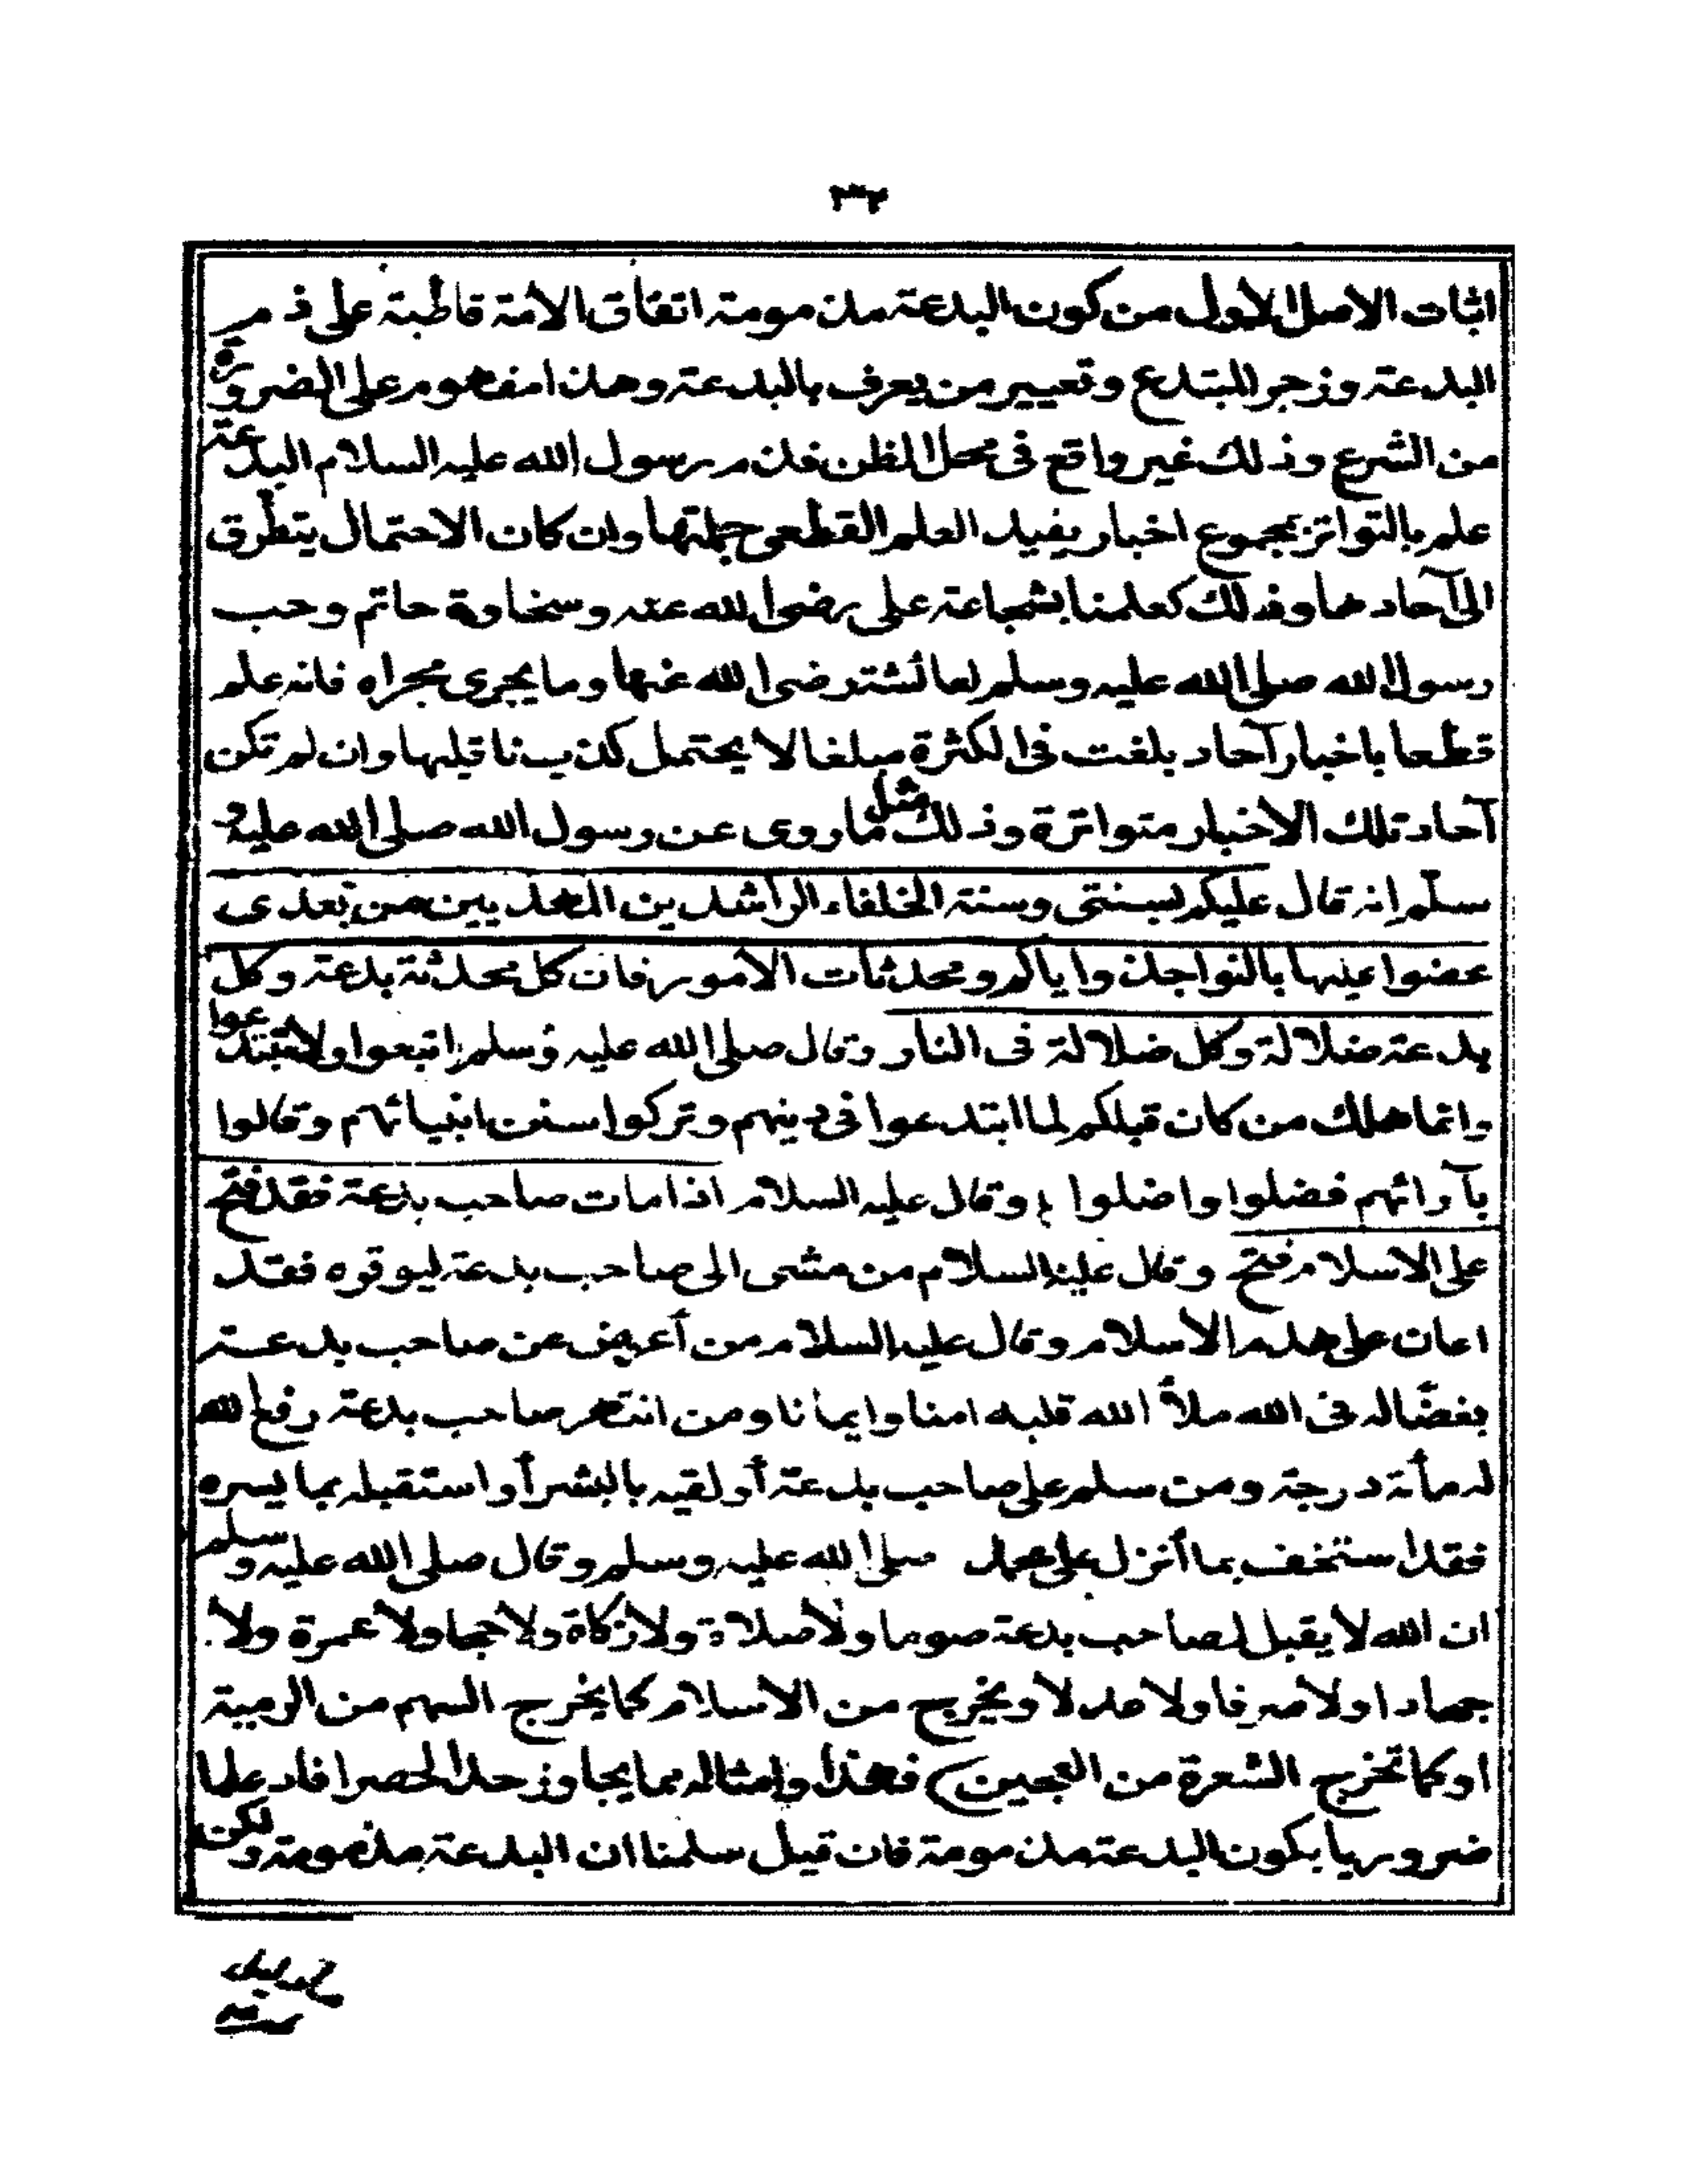 اثبات الاصل الاول من كون البدعة مذمومة اتفاق الأمّة قاطبة على ذم
البدعة وزجر المبتدع وتعيير من يعرف بالبدعة وهذا مفهوم على الضرورة
من الشرع وذلك غير واقع فى محل الظن فذم رسول الله عليه السلام البدعة
علم بالتواتر بمجموع اخبار يفيد العلم القطعى جملتها وان كان الاحتمال يتطرق
الى آحادها وذلك كعلمنا بشجاعة على رضى الله عنه وسخاوة حاتم وحب
رسول الله صلى الله عليه وسلم لعائشة رضى الله عنها وما يجرى مجراه فانه علم
قطعا باخبار آحاد بلغت فى الكثرة مبلغا لا يحتمل كذب ناقليها وان لم تكن
آحاد تلك الأخبار متواترة وذلك مثل ما روى عن رسول الله صلى الله عليه و
سلم انه قال عليكم بسنتى وسنة الخلفاء الراشدين المهديين من بعدى
عضوا عليها بالنواجذ واياكم ومحدثات الأمور فان كل محدثة بدعة وكل
بدعة ضلالة وكل ضلالة فى النار وقال صلى الله عليه وسلم اتبعوا ولا تبتدعوا
وانما هلك من كان قبلكم لما ابتدعوا فى دينهم وتركوا سنن انبيائهم وقالوا
بآرائهم فضلوا واضلوا وقال عليه السلام اذا مات صاحب بدعة فقد فتح
على الاسلام فتح وقال عليه السلام من مشى الى صاحب بدعة ليوقره فقد
اعان على هدم الأسلام وقال عليه السلام من أعرض عن صاحب بدعة
بغضًا له فى الله ملأ الله قلبه امنا وايمانا ومن انتهر صاحب بدعة رفع الله
له مأئة درجة ومن سلم على صاحب بدعة أو لقيه بالبشر أو استقبله بما يسره
فقد استخف بما أنزل على محمد صلى الله عليه وسلم وقال صلى الله عليه وسلم
ان الله لا يقبل لصاحب بدعة صوما ولا صلاة ولا زكاة ولا حجا ولا عمرة ولا
جهادا ولا صرفا ولا عدلا ويخرج من الاسلام كما يخرج السهم من الرمية
او كما تخرج الشعرة من العجين فهذا وامثاله مما يجاوز حد الحصر افاد علما
ضروريا بكون البدعة مذمومة فان قيل سلمنا ان البدعة مذمومة ولكن